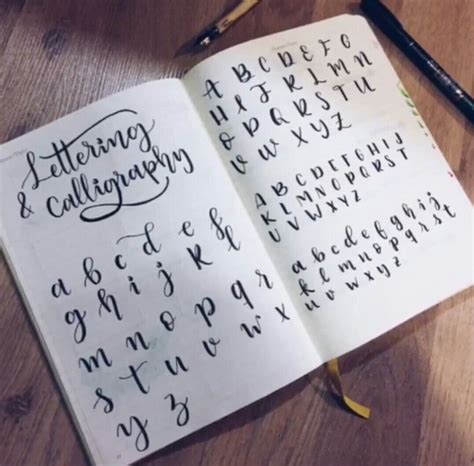 Lettering
& Calligraphy
a b c d e f
g h i j k l
m n o p q r
s t u v w x
y z
A B C D E F G
H I J K L M N
O P Q R S T U
V W X Y Z
A B C D E F G H I J
K L M N O P Q R S T
U V W X Y Z
a b c d e f g h i j
k l m n o p q r s t
u v w x y z